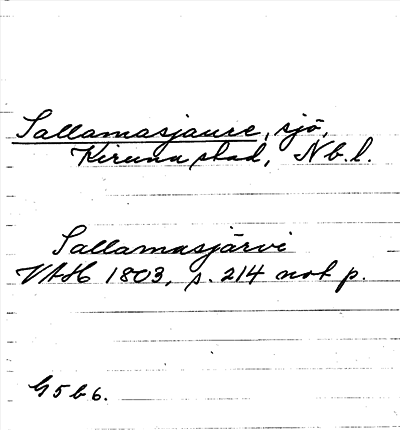 Sallamasjaure, sjö,
Kiruna stad, Nb. l.
Sallamasjärvi
VAH 1803, s. 214 not p.
G5b6.